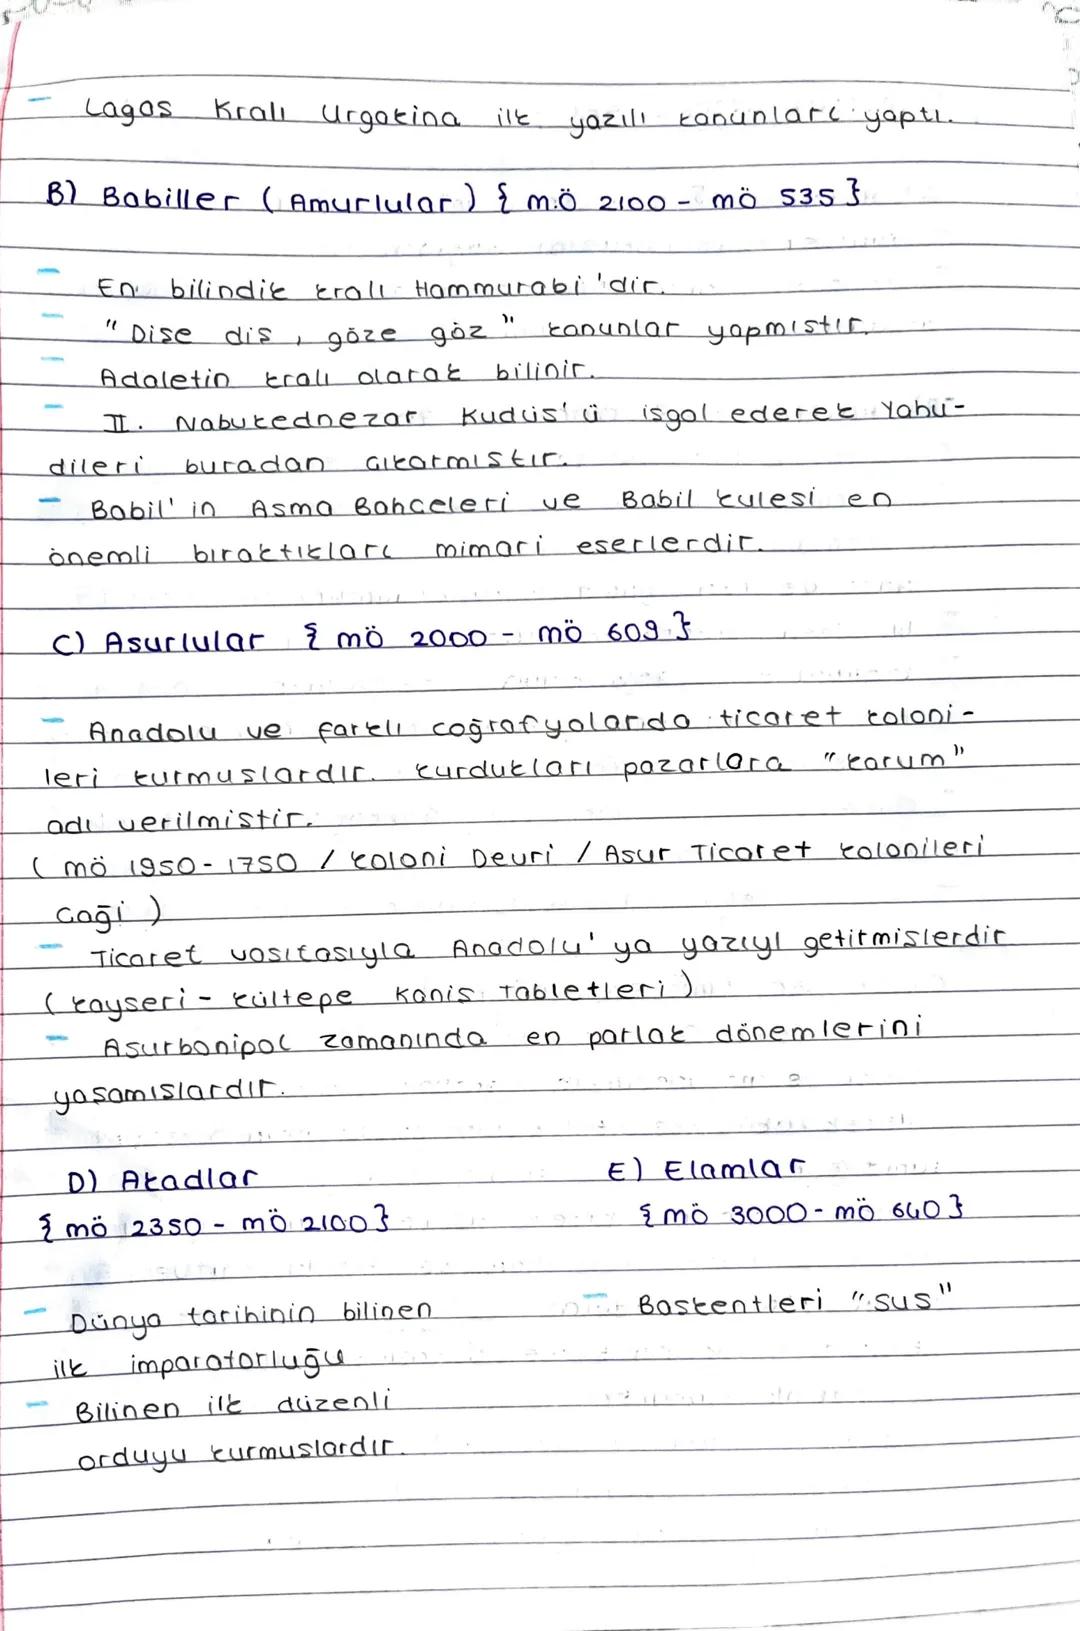 - Lagas Kralı Urgakina ilk yazılı kanunları yaptı.
B) Babiller (Amurlular) { m.ö 2100 - mö 535 }
- En bilindik kralı Hammurabi'dir.
- "Dise dis, göze göz" kanunlar yapmıstır.
- Adaletin kralı olarak bilinir.
- II. Nabukednezar Kudüs'ü isgal ederek Yahu-
dileri buradan cıkarmıstır.
- Babil'in Asma Bahceleri ve Babil kulesi en
önemli bıraktıkları mimari eserlerdir.
C) Asurlular { mö 2000 - mö 609 }
- Anadolu ve farklı coğrafyalarda ticaret koloni-
leri kurmuslardır. kurdukları pazarlara "karum"
adı verilmistir.
( mö 1950 - 1750 / koloni Devri / Asur Ticaret kolonileri
cağı )
- Ticaret vasıtasıyla Anadolu'ya yazıyı getirmislerdir
( kayseri - kültepe Kanis Tabletleri )
- Asurbanipal zamanında en parlak dönemlerini
yasamıslardır.
D) Akadlar
{ mö 2350 - mö 2100 }
- Dünya tarihinin bilinen
ilk imparatorluğu
- Bilinen ilk düzenli
orduyu kurmuslardır.
E) Elamlar
{ mö 3000 - mö 640 }
- Baskentleri "sus"